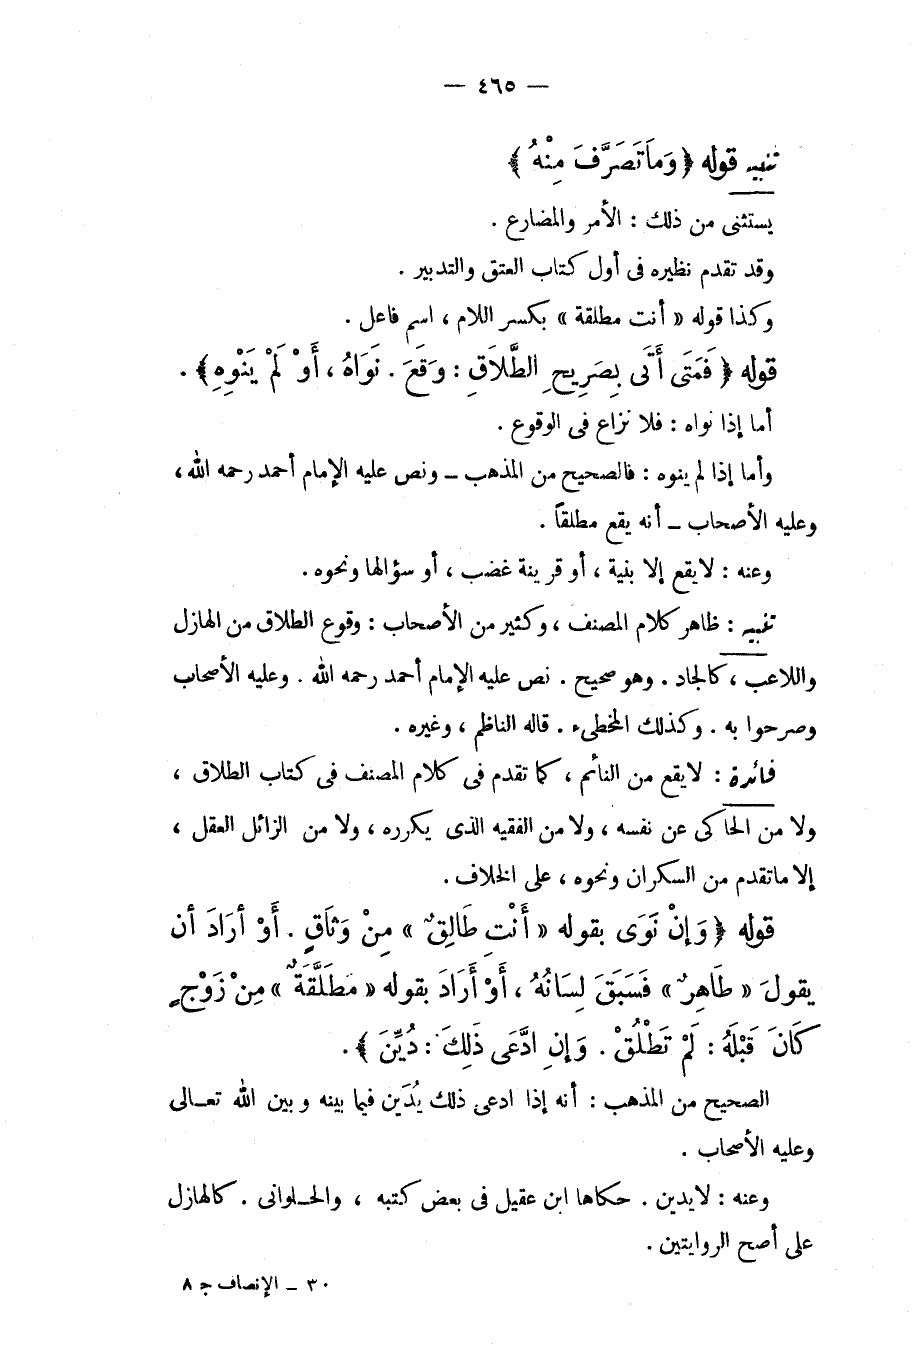 — ٤٦٥ —
تنبيه قوله ﴿ وَمَا تَصَرَّفَ مِنْهُ ﴾
يستثنى من ذلك : الأمر والمضارع .
وقد تقدم نظيره فى أول كتاب العتق والتدبير .
وكذا قوله « أنت مطلقة » بكسر اللام ، اسم فاعل .
قوله ﴿ فَمَتَى أَتَى بِصَرِيحِ الطَّلَاقِ : وَقَعَ . نَوَاهُ ، أَوْ لَمْ يَنْوِهِ ﴾ .
أما إذا نواه : فلا نزاع فى الوقوع .
وأما إذا لم ينوه : فالصحيح من المذهب ــ ونص عليه الإمام أحمد رحمه الله ،
وعليه الأصحاب ــ أنه يقع مطلقاً .
وعنه : لايقع إلا بنية ، أو قرينة غضب ، أو سؤالها ونحوه .
تنبيه : ظاهر كلام المصنف ، وكثير من الأصحاب : وقوع الطلاق من الهازل
واللاعب ، كالجاد . وهو صحيح . نص عليه الإمام أحمد رحمه الله . وعليه الأصحاب
وصرحوا به . وكذلك المخطىء . قاله الناظم ، وغيره .
فائدة : لايقع من النائم ، كما تقدم فى كلام المصنف فى كتاب الطلاق ،
ولا من الحاكى عن نفسه ، ولا من الفقيه الذى يكرره ، ولا من الزائل العقل ،
إلا ماتقدم من السكران ونحوه ، على الخلاف .
قوله ﴿ وَإِنْ نَوَى بقوله « أَنْتِ طَالِقٌ » مِنْ وَثَاقٍ . أَوْ أرَادَ أن
يقولَ « طَاهِرٌ » فَسَبَقَ لِسَانُهُ ، أَوْ أَرَادَ بقوله « مُطَلَّقَةٌ » مِنْ زَوْجٍ
كَانَ قَبْلَهُ : لَمْ تَطْلُقْ . وَإِنِ ادَّعَى ذَلِكَ : دُيِّنَ ﴾ .
الصحيح من المذهب : أنه إذا ادعى ذلك يُدَين فيما بينه وبين الله تعـالى
وعليه الأصحاب .
وعنه : لايدين . حكاها ابن عقيل فى بعض كتبه ، والحـلوانى . كالهازل
على أصح الروايتين .
٣٠ ــ الإنصاف ج ٨